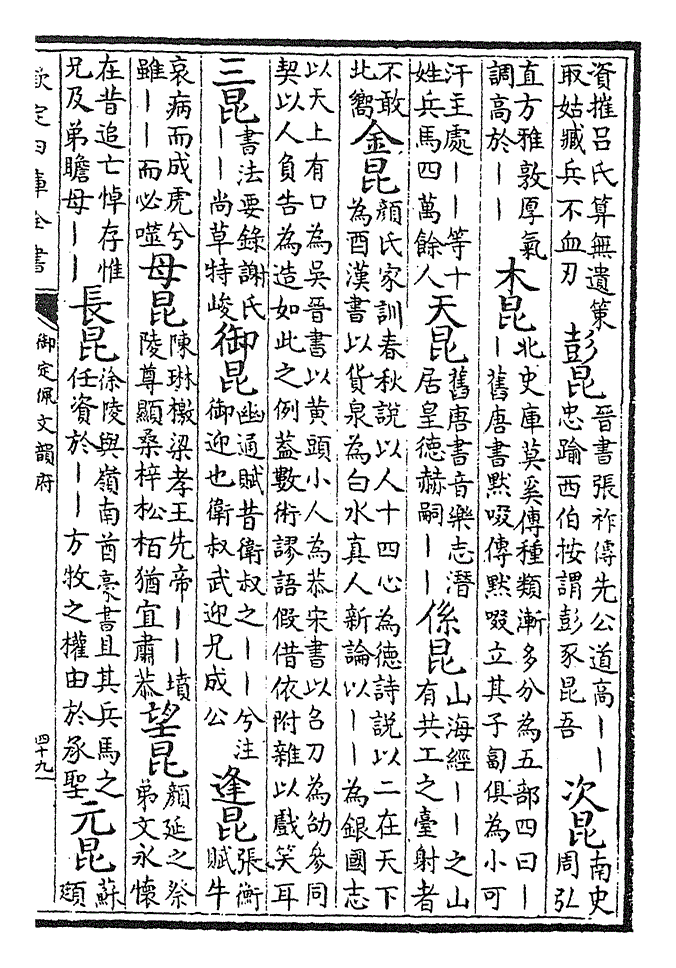 資摧呂氏算無遺策
取姑臧兵不血刃
彭昆
晉書張祚傳先公道高——
忠踰西伯按謂彭豕昆吾
次昆
南史
周弘
直方雅敦厚氣
調高於——
木昆
北史庫莫奚傳種類漸多分為五部四曰—
—舊唐書默啜傳默啜立其子匐俱為小可
汗主處——等十
姓兵馬四萬餘人
天昆
舊唐書音樂志潛
居皇德赫嗣——
係昆
山海經——之山
有共工之臺射者
不敢
北嚮
金昆
顏氏家訓春秋說以人十四心為德詩說以二在天下
為酉漢書以貨泉為白水真人新論以——為銀國志
以天上有口為吳晉書以黃頭小人為恭宋書以召刀為劭參同
契以人負告為造如此之例蓋數術謬語假借依附雜以戲笑耳
三昆
書法要錄謝氏
——尚草特峻
御昆
幽通賦昔衛叔之——兮注
御迎也衛叔武迎兄成公
逢昆
張衡
賦牛
哀病而成虎兮
雖——而必噬
母昆
陳琳檄梁孝王先帝——墳
陵尊顯桑梓松栢猶宜肅恭
望昆
顏延之祭
弟文永懷
在昔追亡悼存惟
兄及弟瞻母——
長昆
徐陵與嶺南酋豪書且其兵馬之
任資於——方牧之權由於承聖
元昆
蘇
頲
欽定四庫全書
御定佩文韻府
四十九